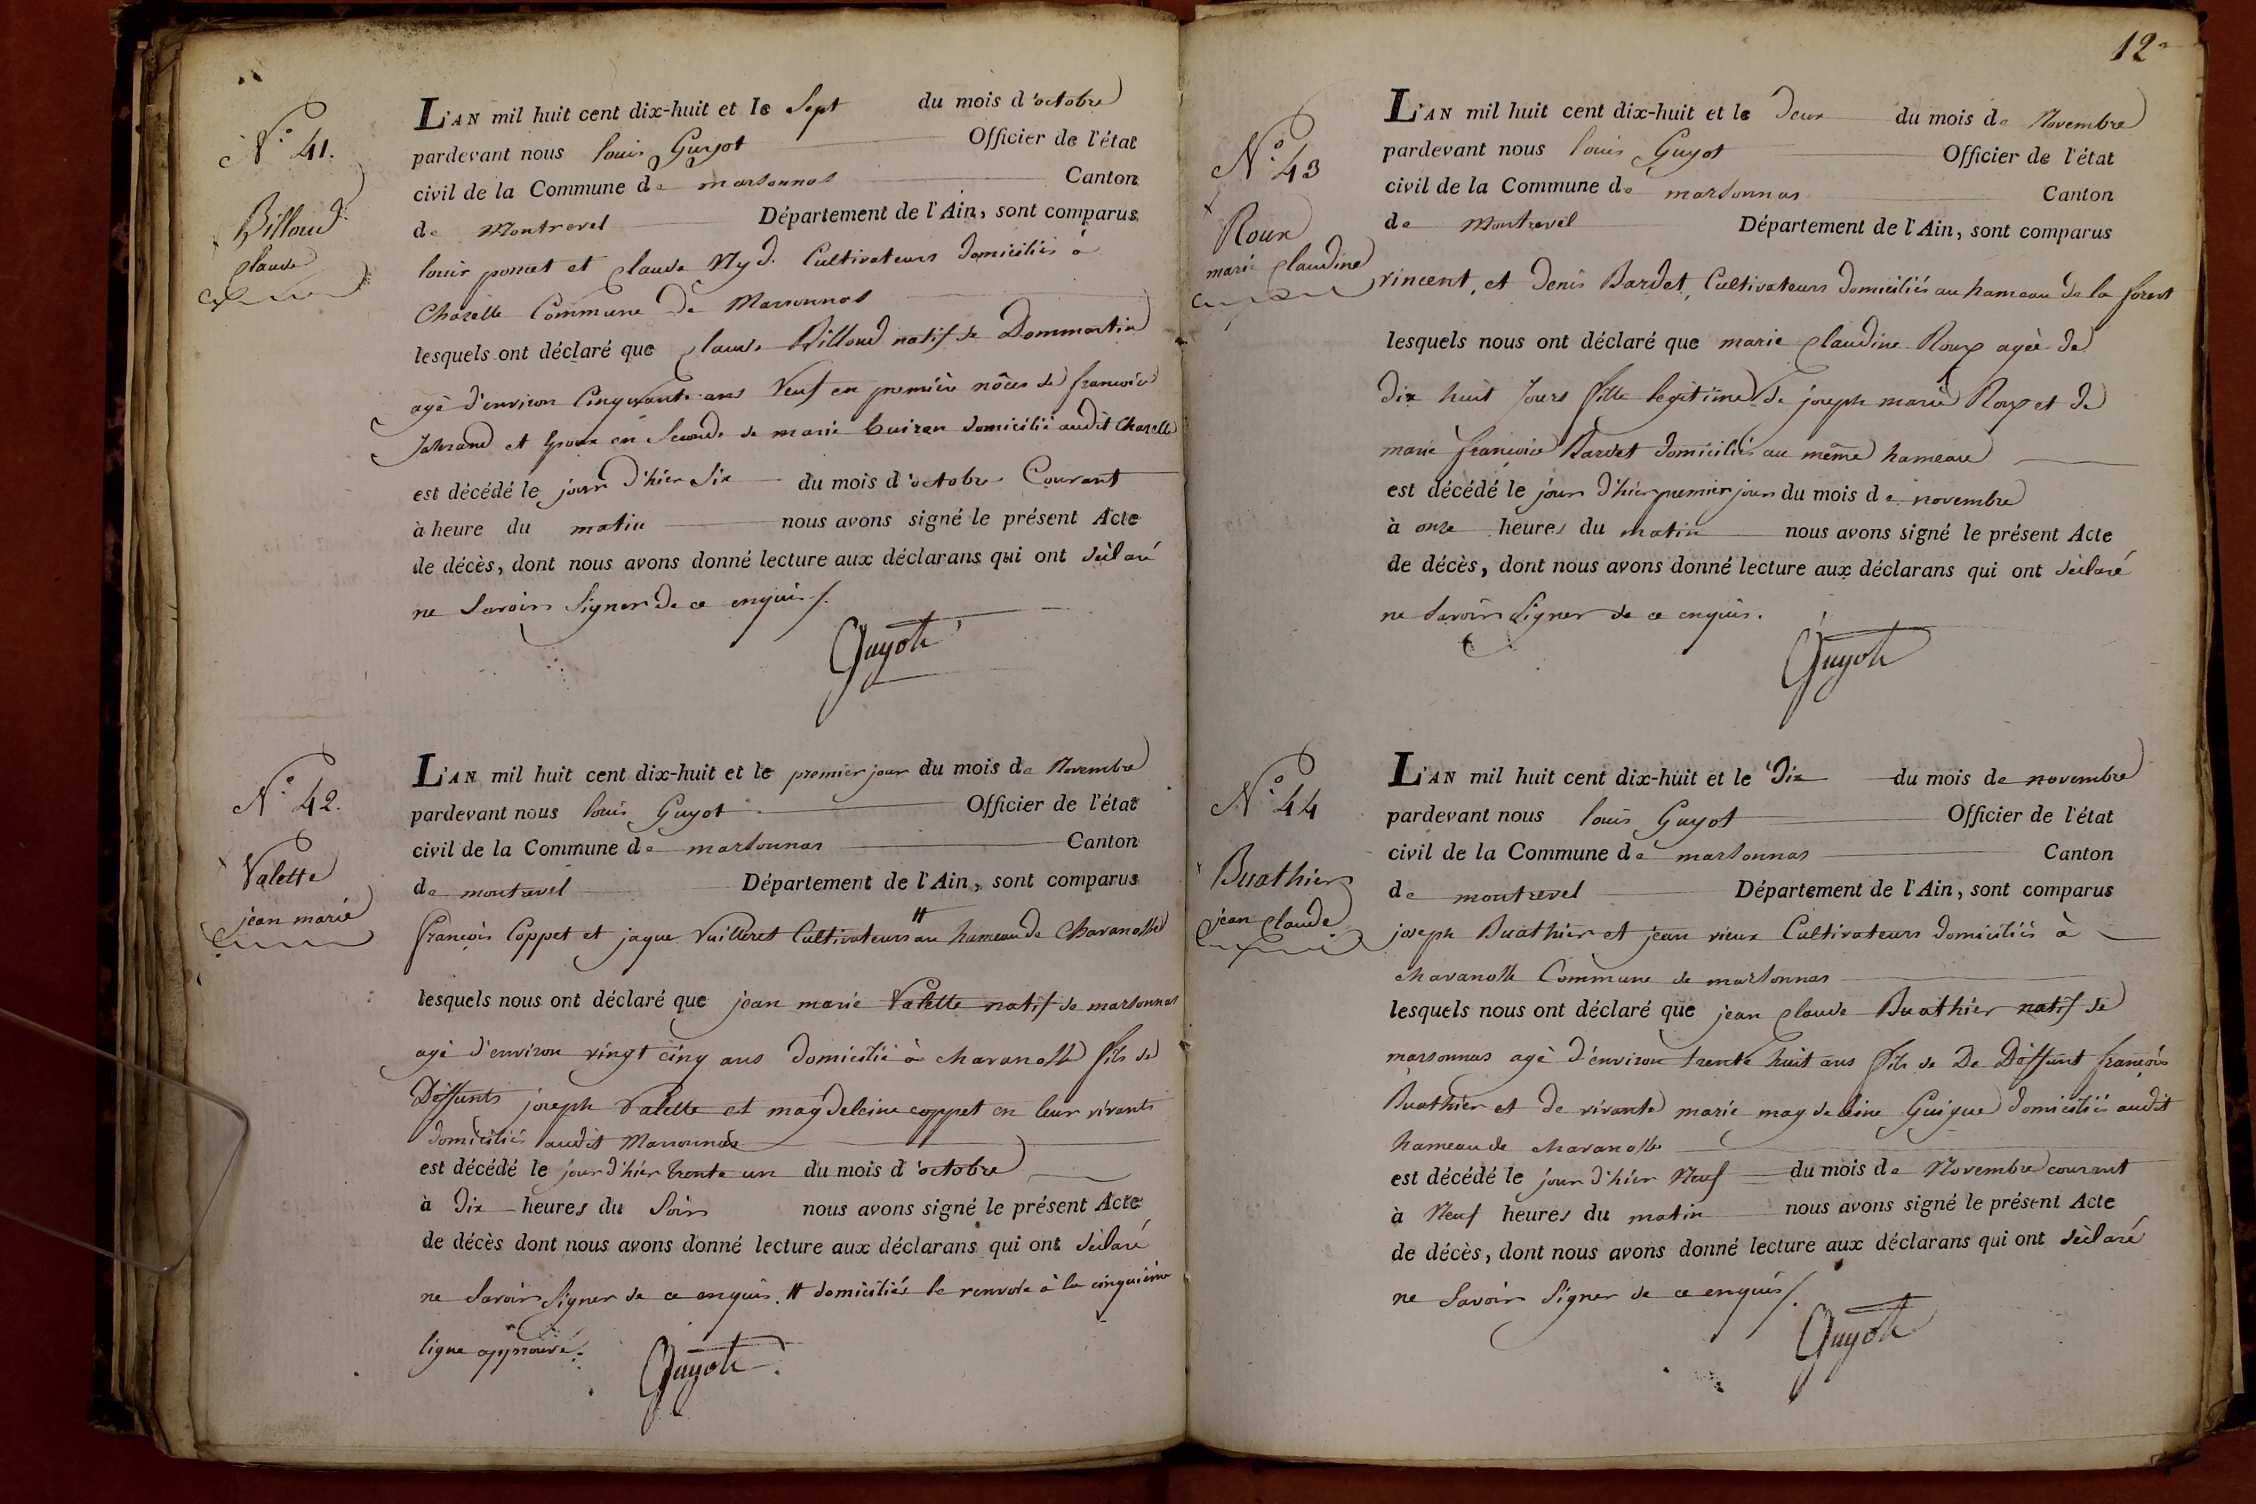 N.° 41.
Billoud
claude
L'AN mil huit cent dix-huit et le Sept du mois d'octobre
pardevant nous louis Guyot Officier de l'état
civil de la Commune de marsonnas Canton
de Montrevel Département de l'Ain, sont comparus
louis pomet et claude Nyd. Cultivateurs domiciliés à
Chazelle Commune de Marsonnas
lesquels ont déclaré que claude Billoud natif de Dommartin
agé d'environ Cinquante ans Veuf en première nôces de francoise
et Epoux en Seconde de marie domicilié audit Chazelle
est décédé le jour d'hier Six du mois d'octobre Courant
à heure du matin nous avons signé le présent Acte
de décès, dont nous avons donné lecture aux déclarans qui ont déclaré
ne Savoir Signer de ce enquis /.
Guyot
N.° 42.
Valette
jean marie
L'AN mil huit cent dix-huit et le premier jour du mois de Novembre
pardevant nous louis Guyot Officier de l'état
civil de la Commune de marsonnas Canton
de montrevel Département de l'Ain, sont comparus
françois Coppet et jaque Vuilleret Cultivateurs # au hameau de Chavanosse
lesquels nous ont déclaré que jean marie Valette natif de marsonnas
agé d'environ vingt cinq ans domicilié à chavanosse fils de
Deffunts joseph Valette et magdeleine coppet en leur vivants
domiciliés audit Marsonnas
est décédé le jour d'hier trente un du mois d'octobre
à Dix heures du Soir nous avons signé le présent Acte
de décès dont nous avons donné lecture aux déclarans qui ont déclaré
ne Savoir Signer de ce enquis. # domiciliés le renvoie à la cinquième
ligne approuvé.
Guyot
12
N.° 43
Roux
marie claudine
L'AN mil huit cent dix-huit et le deux du mois de Novembre
pardevant nous louis Guyot Officier de l'état
civil de la Commune de marsonnas Canton
de Montrevel Département de l'Ain, sont comparus
vincent, et denis Bardet, Cultivateurs domiciliés au hameau de la forest
lesquels nous ont déclaré que marie claudine Roux agée de
dix huit Jours fille legitime de joseph marie Roux et de
marie francoise Bardet domiciliés au même hameau
est décédé le jour d'hier premier jour du mois de novembre
à onze heures du matin nous avons signé le présent Acte
de décès, dont nous avons donné lecture aux déclarans qui ont déclaré
ne Savoir Signer de ce enquis.
Guyot
N.° 44
Buathier
jean claude
L'AN mil huit cent dix-huit et le Dix du mois de novembre
pardevant nous louis Guyot Officier de l'état
civil de la Commune de marsonnas Canton
de montrevel Département de l'Ain, sont comparus
joseph Buathier et jean vieux Cultivateurs domiciliés à
chavanosse Commune de marsonnas
lesquels nous ont déclaré que jean claude Buathier natif de
marsonnas agé d'environ trente huit ans fils de De Deffunt françois
Buathier et de vivante marie magdeleine Guigue domiciliés audit
hameau de chavanosse
est décédé le jour d'hier Neuf du mois de Novembre courant
à Neuf heures du matin nous avons signé le présent Acte
de décès, dont nous avons donné lecture aux déclarans qui ont déclaré
ne Savoir Signer de ce enquis /.
Guyot